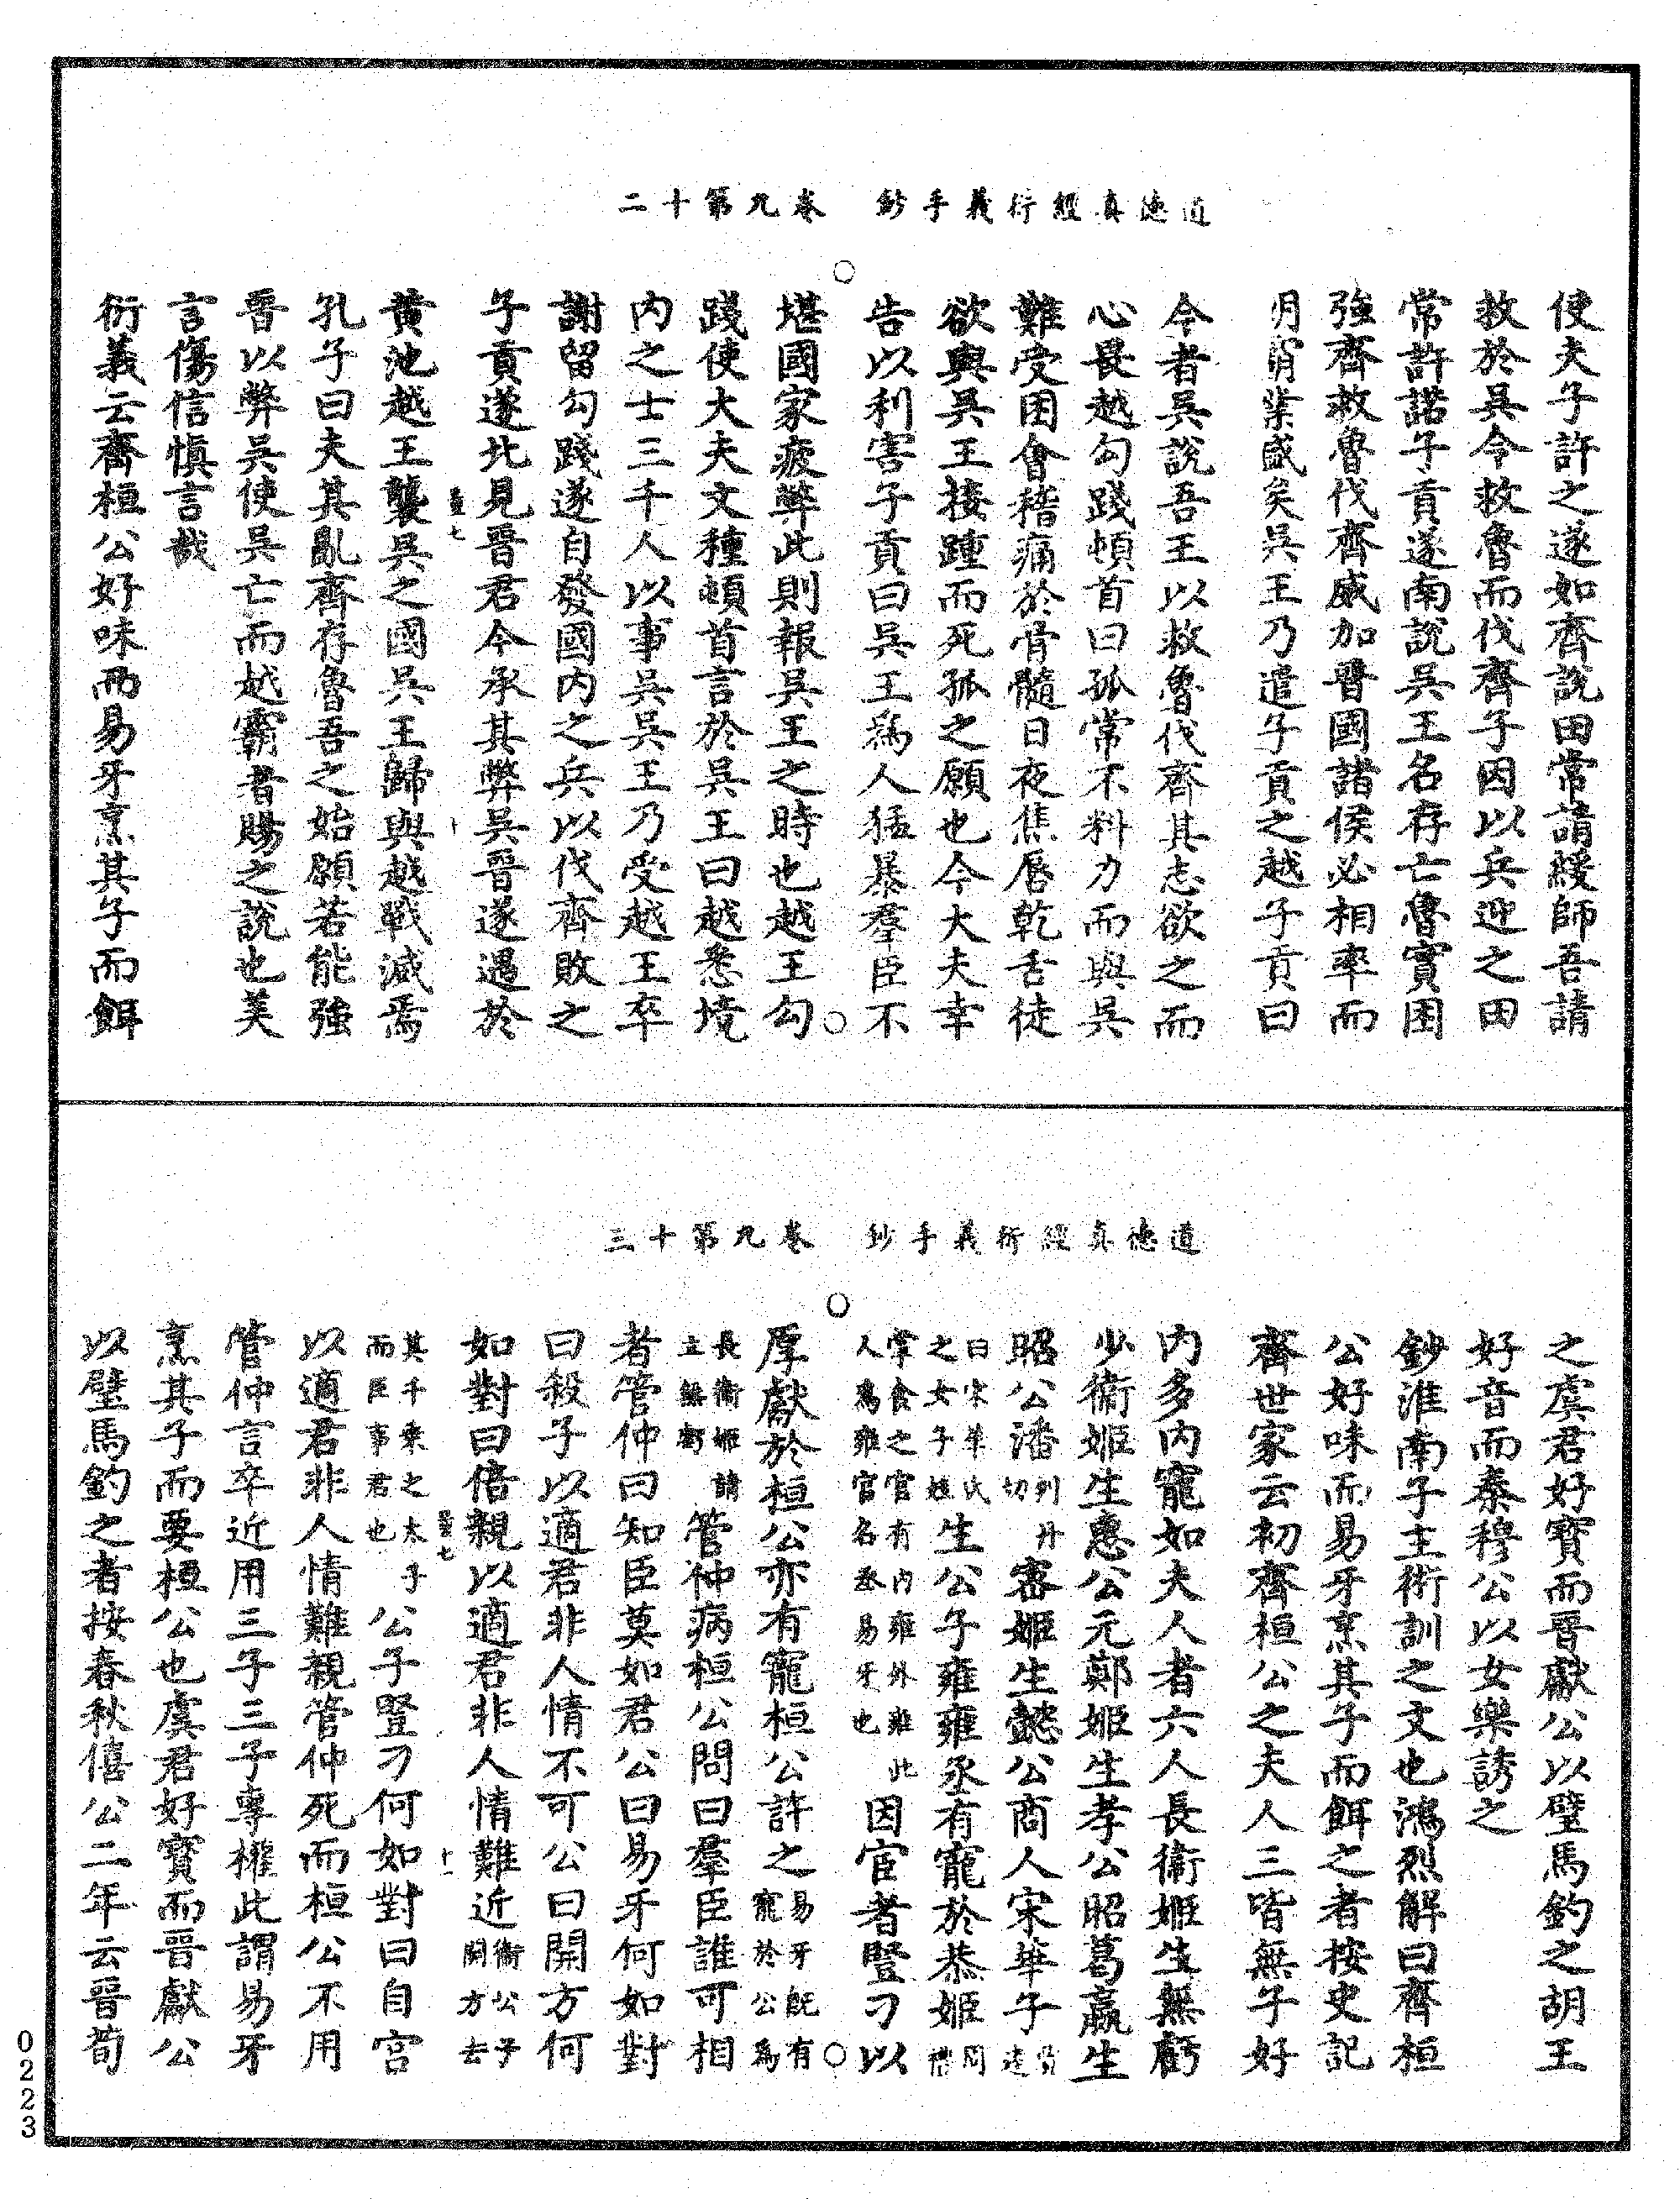 道德真經衍義手鈔　卷九第十二
使夫子許之遂如齊說田常請緩師吾請
救於吳令救魯而伐齊子因以兵迎之田
常許諾子貢遂南說吳王名存亡魯實困
強齊救魯伐齊威加晉國諸侯必相率而
朋霄業盛矣吳王乃遣子貢之越子貢曰
今者吳說吾王以救魯伐齊其志欲之而
心畏越勾踐頓首曰孤常不料力而與吳
難受困會稽痛於骨髓日夜焦唇乾舌徒
欲與吳王接踵而死孤之願也今大夫幸
告以利害子貢曰吳王為人猛暴羣臣不
堪國家疲弊此則報吳王之時也越王勾
踐使大夫文種頓首言於吳王曰越悉境
內之士三千人以事吳吳王乃受越王卒
謝留勾踐遂自發國內之兵以伐齊敗之
子貢遂北見晉君令承其弊吳晉遂遇於
黃池越王襲吳之國吳王歸與越戰滅焉
孔子曰夫其亂齊存魯吾之始願若能強
晉以弊吳使吳亡而越霸者賜之說也美
言傷信慎言哉
衍義云齊桓公好味而易牙烹其子而餌
道德真經衍義手鈔　卷九第十三
之虞君好寶而晉獻公以璧馬釣之胡王
好音而秦穆公以女樂誘之
鈔淮南子主術訓之文也鴻烈解曰齊桓
公好味而易牙烹其子而餌之者按史記
齊世家云初齊桓公之夫人三皆無子好
內多內寵如夫人者六人長衛姬生無虧
少衛姬生惠公元鄭姬生孝公昭葛嬴生
昭公潘判丹切密姬生懿公商人宋華子賈逵
曰宋華氏之女子姓生公子雍雍丞有寵於恭姬周禮
掌食之官有內雍外雍此人為雍官名丞易牙也因宦者豎刁以
厚獻於桓公亦有寵桓公許之易牙既有寵於公為
長衛姬請立無虧管仲病桓公問曰羣臣誰可相
者管仲曰知臣莫如君公曰易牙何如對
曰殺子以適君非人情不可公曰開方何
如對曰倍親以適君非人情難近衛公子開方去
其千乘之太子而臣事君也公子豎刁何如對曰自宮
以適君非人情難親管仲死而桓公不用
管仲言卒近用三子三子專權此謂易牙
烹其子而要桓公也虞君好寶而晉獻公
以璧馬釣之者按春秋僖公二年云晉荀
0223